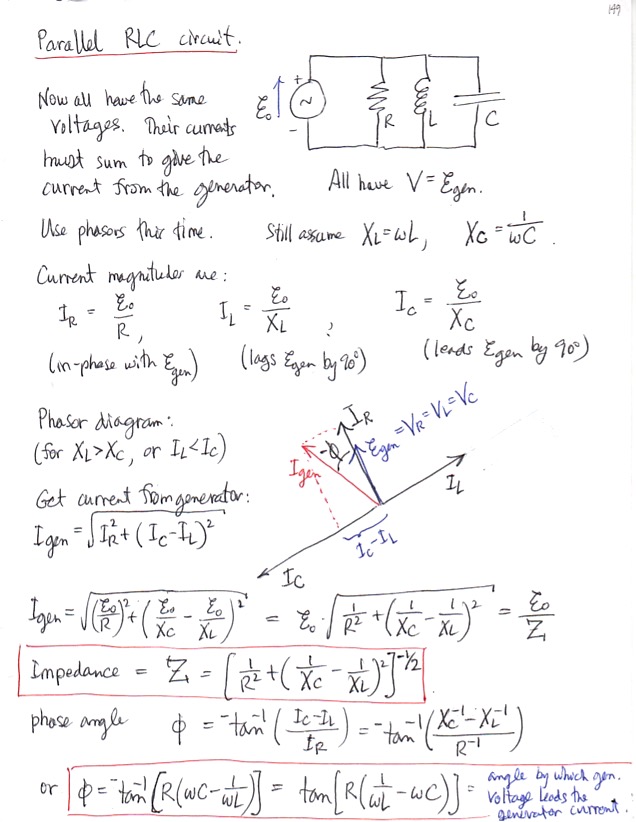 149
Parallel RLC circuit.
Now all have the same
voltages. Their currents
must sum to give the
current from the generator.
ℰ₀ + ~ - R L C
All have V = ℰgen.
Use phasors this time. Still assume X_L = ωL, X_C = 1/ωC.
Current magnitudes are:
I_R = ℰ₀/R, I_L = ℰ₀/X_L, I_C = ℰ₀/X_C
(in-phase with ℰgen) (lags ℰgen by 90°) (leads ℰgen by 90°)
Phasor diagram:
(for X_L > X_C, or I_L < I_C)
I_R
ℰgen = V_R = V_L = V_C
-ϕ
Igen
I_L
I_C - I_L
I_C
Get current from generator:
Igen = √(I_R² + (I_C - I_L)²)
Igen = √((ℰ₀/R)² + (ℰ₀/X_C - ℰ₀/X_L)²) = ℰ₀ · √(1/R² + (1/X_C - 1/X_L)²) = ℰ₀/Z
Impedance = Z = [1/R² + (1/X_C - 1/X_L)²]^(-1/2)
phase angle ϕ = -tan⁻¹((I_C - I_L)/I_R) = -tan⁻¹((X_C⁻¹ - X_L⁻¹)/R⁻¹)
or ϕ = -tan⁻¹[R(ωC - 1/ωL)] = tan[R(1/ωL - ωC)] = angle by which gen.
voltage leads the
generator current.